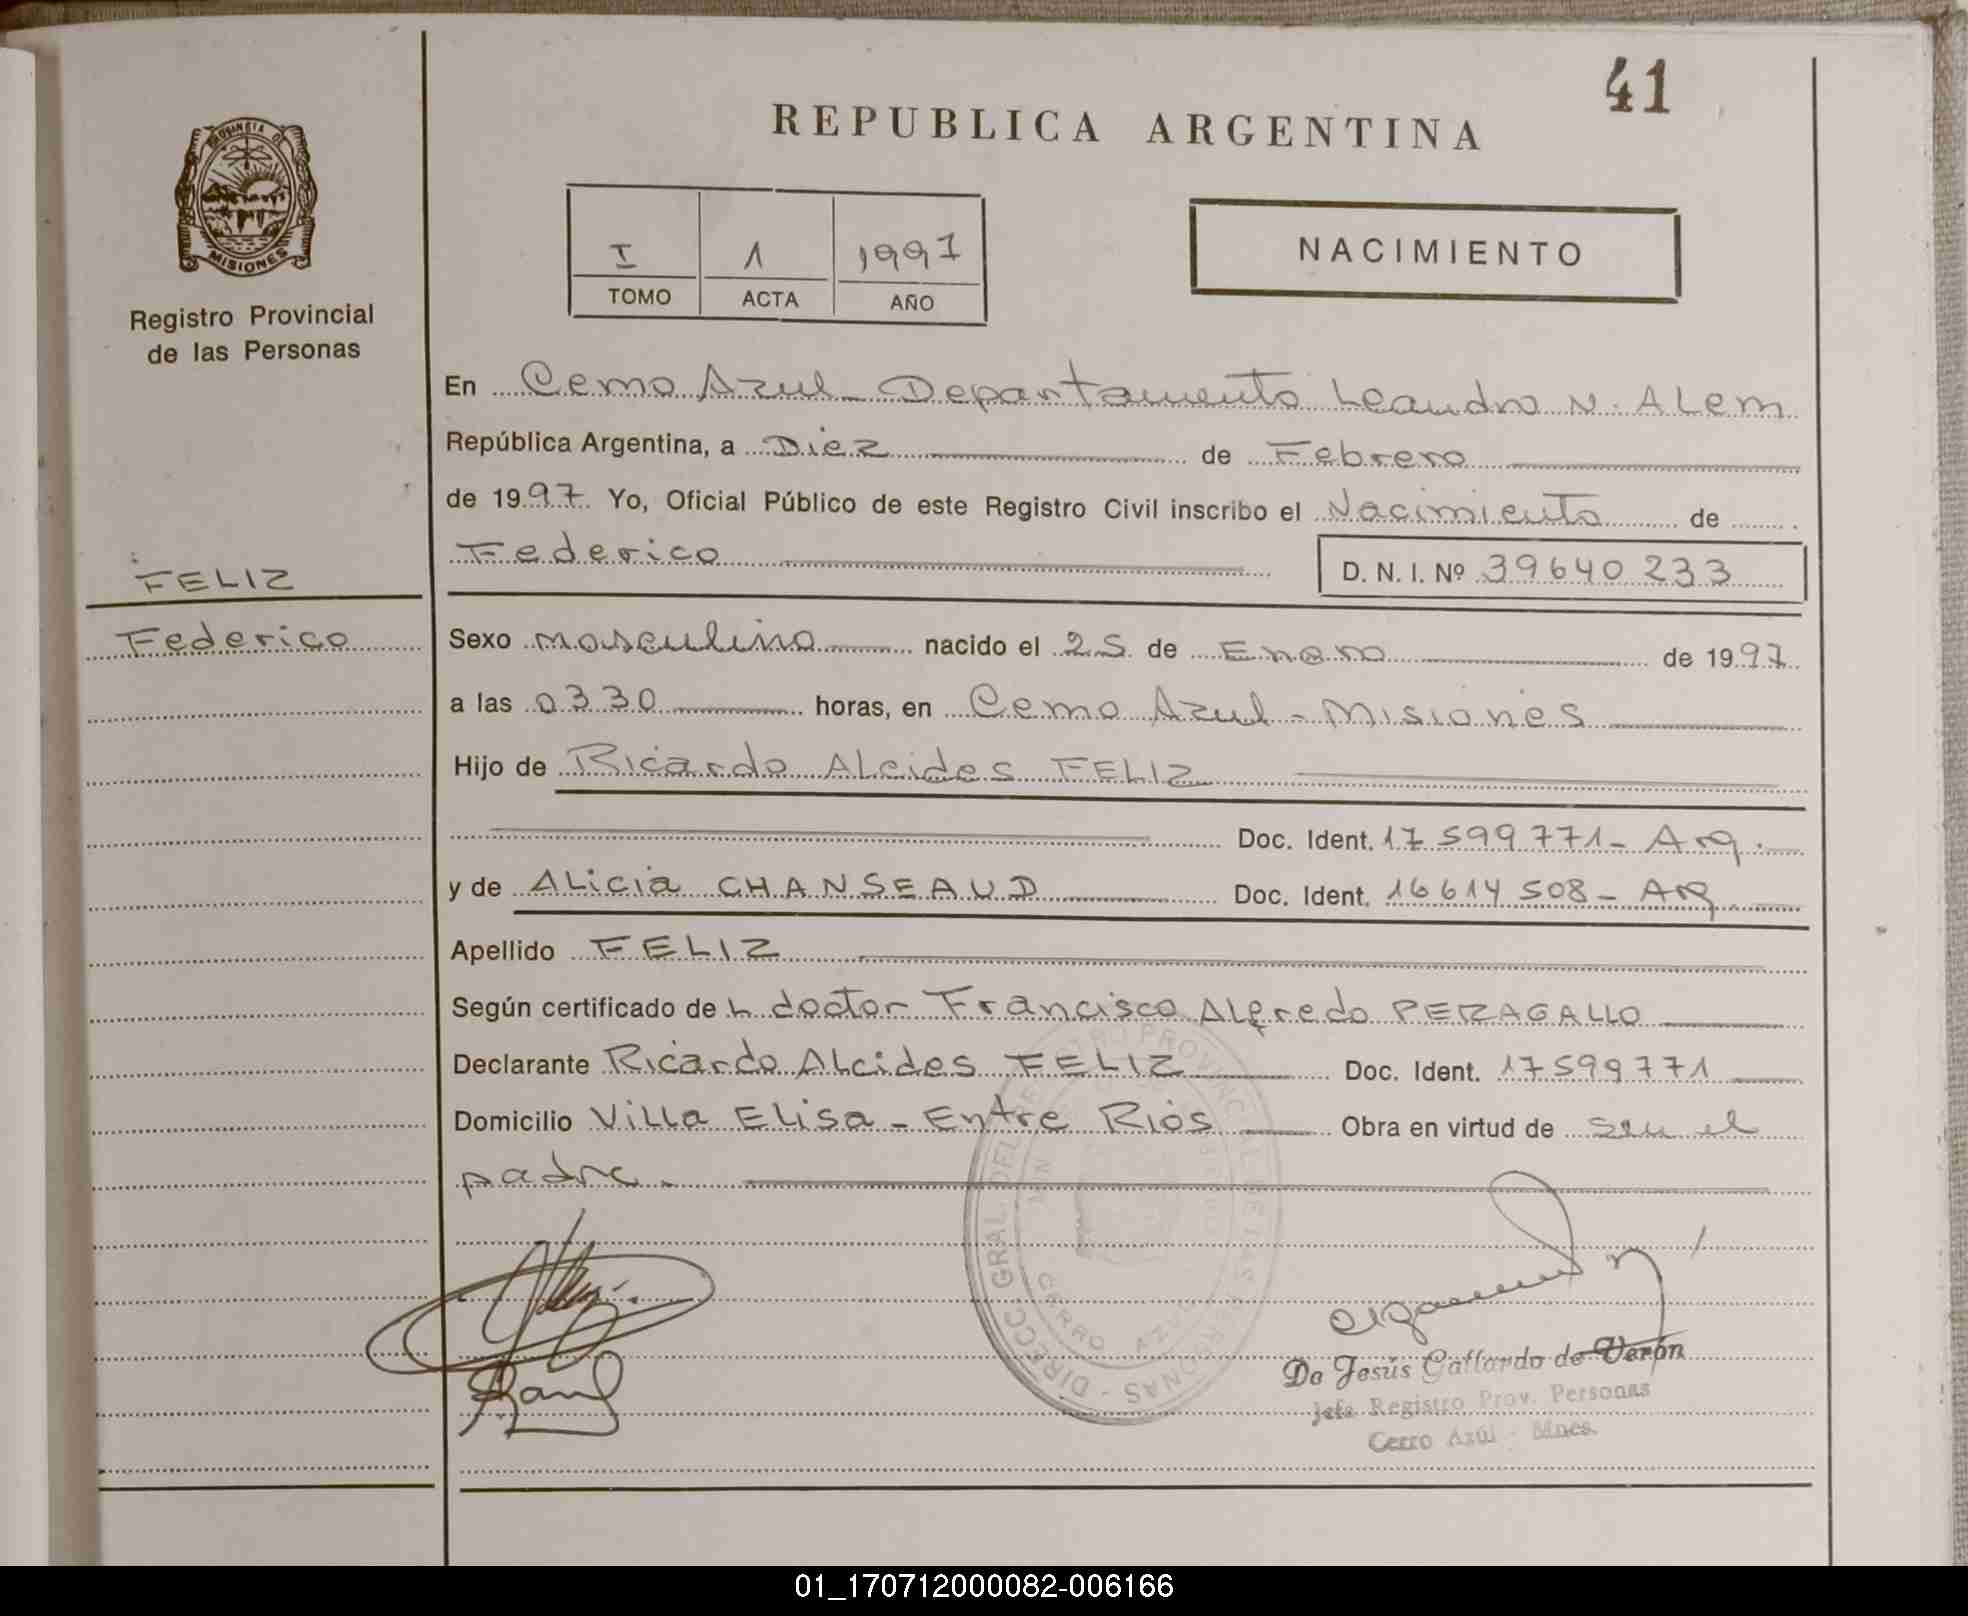 41
REPUBLICA ARGENTINA
PROVINCIA DE
MISIONES
Registro Provincial
de las Personas
I 1 1997
TOMO ACTA AÑO
NACIMIENTO
En Cerro Azul - Departamento Leandro N. ALem
República Argentina, a Diez de Febrero
de 1997 Yo, Oficial Público de este Registro Civil inscribo el Nacimiento de
Federico D. N. I. Nº 39640233
FELIZ
Federico
Sexo masculino nacido el 25 de Enero de 1997
a las 0330 horas, en Cerro Azul - Misiones
Hijo de Ricardo Alcides FELIZ
Doc. Ident. 17599771 - Arg.
y de ALicia CHANSEAUD Doc. Ident. 16614508 - Arg.
Apellido FELIZ
Según certificado de L doctor Francisco Alfredo PERAGALLO
Declarante Ricardo Alcides FELIZ Doc. Ident. 17599771
Domicilio Villa Elisa - Entre Rios Obra en virtud de ser el
padre.
DIRECC. GRAL. DEL REGISTRO PROVINCIAL DE LAS PERSONAS
CERRO AZUL
De Jesús Gallardo de Verón
Jefe Registro Prov. Personas
Cerro Azúl - Mnes.
01_170712000082-006166